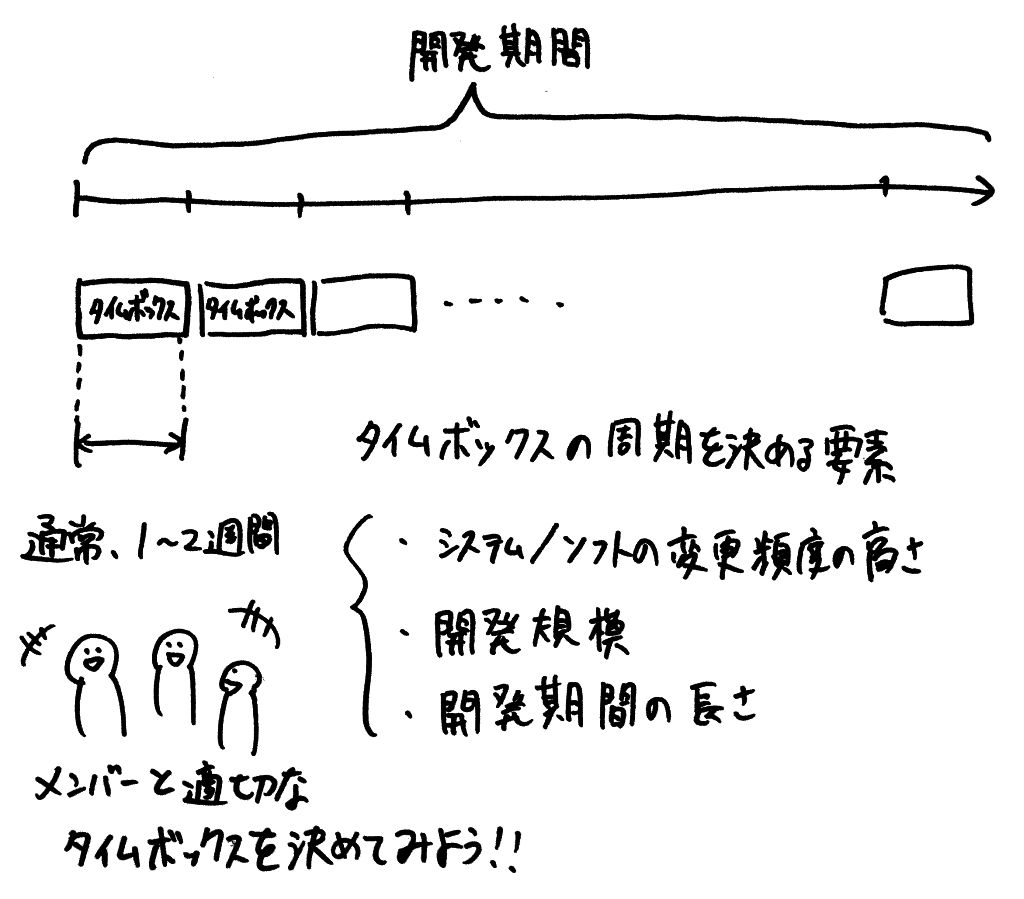 開発期間
タイムボックス タイムボックス
タイムボックスの周期を決める要素
通常、1〜2週間
・システム/ソフトの変更頻度の高さ
・開発規模
・開発期間の長さ
メンバーと適切な
タイムボックスを決めてみよう!!